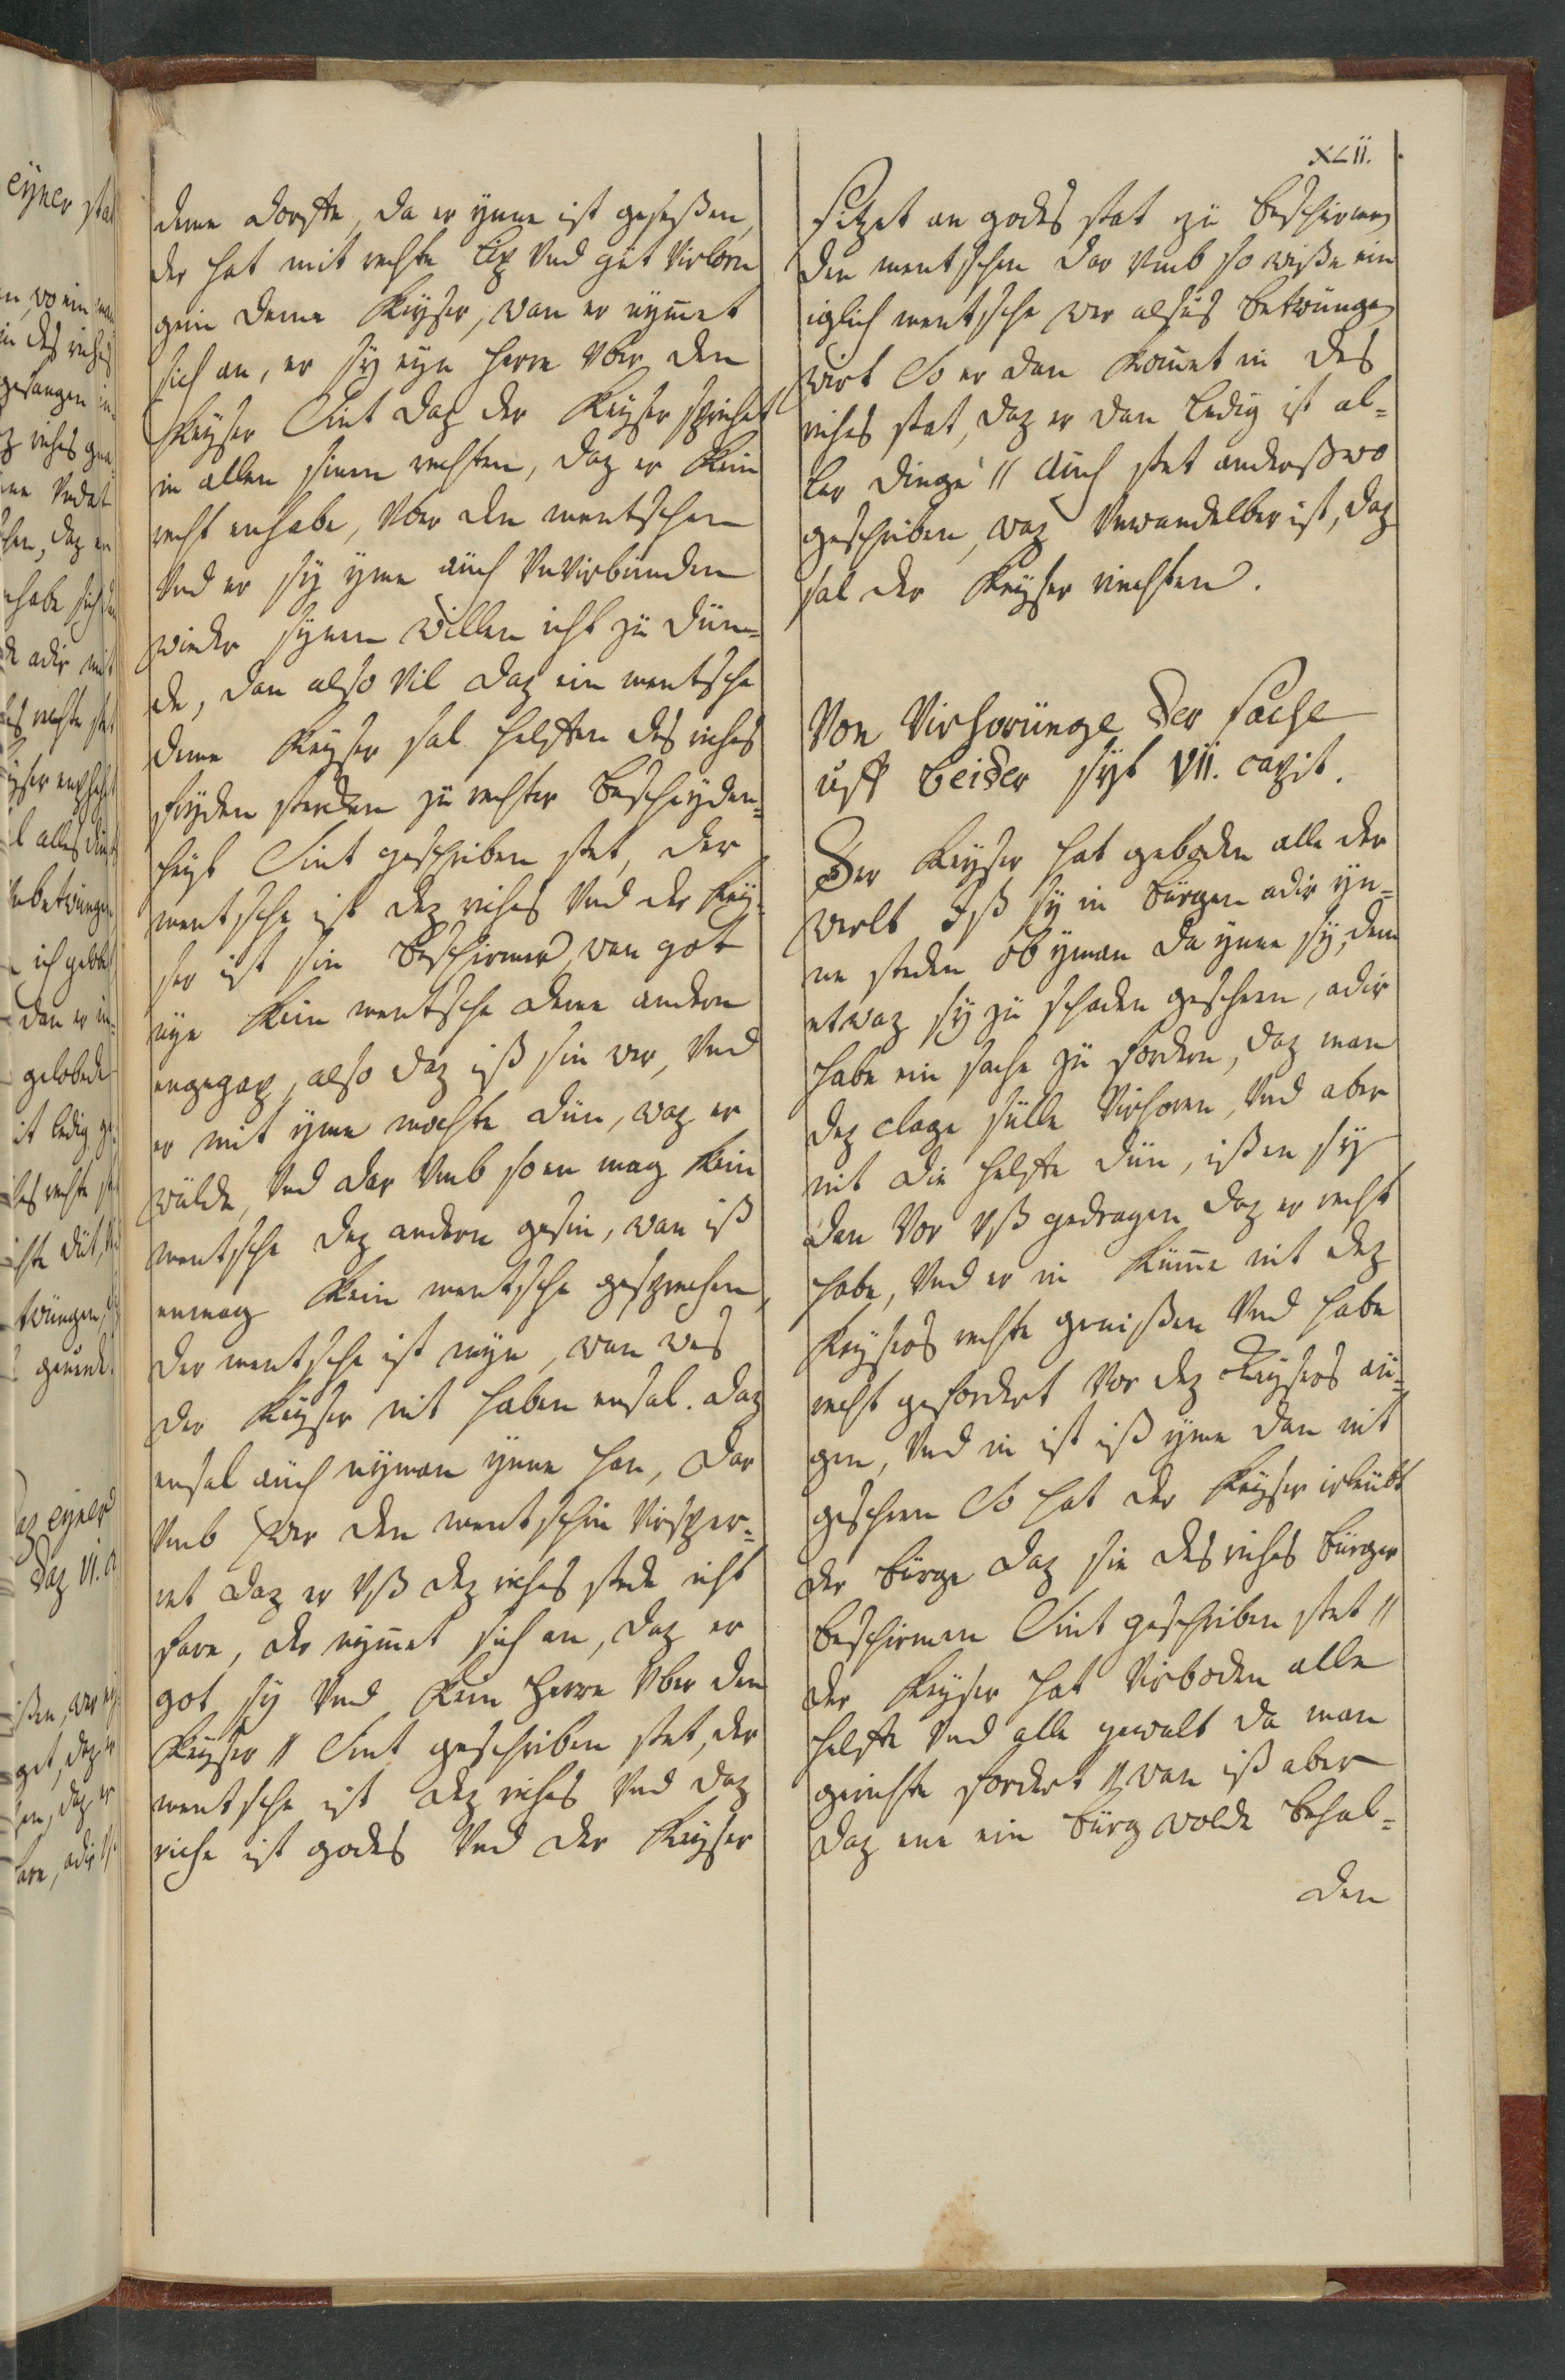 XLII.
deme dorffte, da er ynne ist geseßen,
der hat mit rechte lip vnd gut virlorn
gein deme keyser, wan er nymmet
sich an, er sy eyn herre vber den
keyser Sint daz der keyser sprichet
in allen sinen rechten, daz er kein
recht enhabe, vber den mentschen
vnd er sy yme auch vnvirbunden
wieder synen willen icht zu dun-
de, dan also vil daz ein mentsche
deme keyser sal helffen des riches
fryden sterken zu rechter bescheyden-
heyt Sint geschriben stet, der
mentsche ist dez riches vnd der key-
ser ist sin beschirmer, wan got
nye kein mentsche deme andern
engegap, also daz iß sin wer, vnd
er mit yme mochte dun, waz er
wulde, vnd dar vmb so en mag kein
mentsche dez andern gesin, wan iß
enmag kein mentsche gesprechen,
der mentsche ist myn, wan wes
der keyser nit haben ensal. daz
ensal auch nyman ynne han, dar
vmb wer den mentschin virsper-
ret daz er vß dez riches stede icht
fare, der nymmet sich an, daz er
got sy vnd kein herre vber den
keyser // Sint geschriben stet, der
mentsche ist dez riches vnd daz
riche ist godes vnd der keyser
sitzet an godes stat zu beschirmen
den mentschen dar vmb so wiße ein
iglich mentsche wer alsus betwungen
wirt So er dan kommet in des
riches stat, daz er dan ledig ist al-
ler dinge // Auch stet anderßwo
geschriben, waz vnwandelber ist, daz
sal der keyser riechten.
Von Virhorunge der sache
uff beider syt VII. capit.
Der keyser hat geboden alle der
werlt Iß sy in burgen adir yn-
ne steden ob yman da ynne sy, dem
etwaz sy zu schaden gescheen, adir
habe ein sache zu fordern, daz man
dez clage sulle virhoren, vnd aber
nit die helffte dun, ißen sy
dan vor vß gedragen daz er recht
habe, vnd er in kunne nit dez
keysers rechte genißen vnd habe
recht gefordert vor dez keysers au-
gen, vnd in ist iß yme dan nit
gescheen So hat der keyser irleubt
der burge daz sie des riches burger
beschirmen Sint geschriben stet //
der keyser hat virboden alle
helffte vnd alle gewalt da man
gerichte fordert // wan iß aber
daz ene ein burg wolde behal-
den